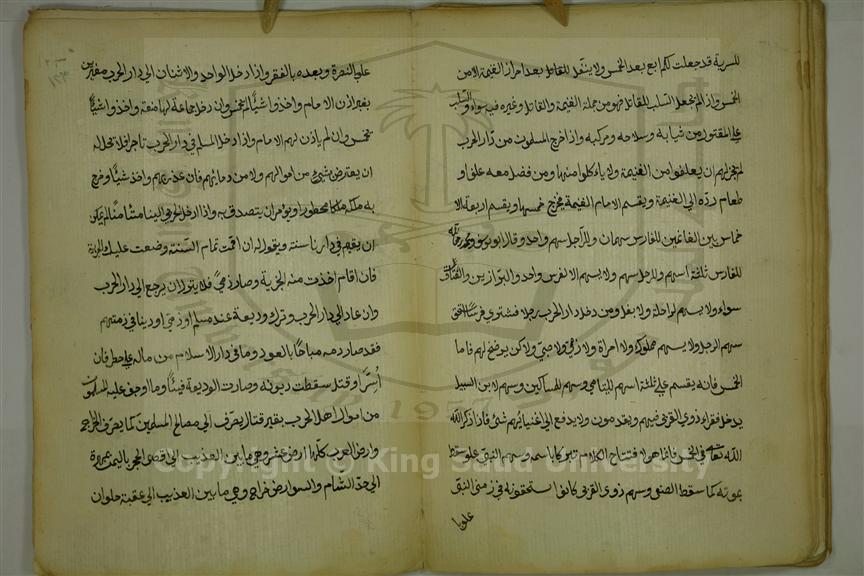 للسرية قد جعلت لكم الربع بعد الخمس ولا ينفل للقاتل بعد احراز الغنيمة الا من
الخمس واذا لم يجعل السلب للقاتل فهو من جملة الغنيمة والقاتل وغيره فيه سواء والسلب
على المقتول من ثيابه وسلاحه ومركبه واذا خرج المسلمون من دار الحرب
لم يجز لهم ان يعلفوا من الغنيمة ولا ياءكلوا منها ومن فضل معه علف او
طعام رده الى الغنيمة ويقسم الامام الغنيمة فيخرج خمسها ويقسم اربعة الا
خماس بين الغانمين للفارس سهمان وللراجل سهم واحد وقال ابو يوسف ومحمد رحمهما الله
للفارس ثلثة اسهم وللرجل سهم ولا يسهم الا لفرس واحد والبرازين والعتاق
سواء ولا يسهم لراحلة ولا بغل ومن دخل دار الحرب رجلا فشترى فرسًا استحق
سهم الرجل ولا يسهم مملوك ولا امراة ولا ذمي ولا صبي ولاكن يرضخ لهم فاما
الخمس فانه يقسم على ثلثة اسهم لليتامى وسهم للمساكين وسهم لابن السبيل
يدخل فقراء ذوى القربى فيهم ويقدمون ولا يدفع الى اغنيائهم شئ فاما ذكر الله
الله تعالى في الخمس فانما هو لافتتاح الكلام تبركا باسمه وسهم النبي عليه سقط
بموته كما سقط الصفي وسهم ذوى القربى كانوا استحقونه في زمن النبي
عليه با
عليه بالنصرة وبعده بالفقر واذا دخل الواحد والاثنان الى دار الحرب مغيرين
بغير اذن الامام واخذوا شيًا لم يخمس وان دخل جماعة لها منعة واخذوا شيًا
خمس وان لم ياذن لهم الامام واذا دخل المسلم في دار الحرب تاجرا فلا تحل له
ان يعترض بشئ من اموالهم ولا من دمايهم فان غدر بهم واخذ شيًا وخرج
به ملكه ملكا محظورا ويؤمر ان يتصدق به واذا دخل الحربي الينا مستأمنا لم يكن
ان يقيم في دارنا سنة ويقول له ان اقمت تمام السنة وضعت عليك الجزية
فان اقام اخذت منه الجزية وصار ذمي فلا يترك ان يرجع الى دار الحرب
وان عاد الى دار الحرب وترك وديعة عند مسلم او ذمي او دينا في ذمتهم
فقد صار دمه مباحًا بالعود وما في دار الاسلام من ماله على خطر فان
اُسِرَ او قتل سقطت ديونه وصارت الوديعة فيئًا وما اوجف عليه المسلمون
من اموال اهل الحرب بغير قتال يصرف الى مصالح المسلمين كما يصرف الخراج
وارض العرب كلها ارض عشر وهي ما بين العذيب الى اقصى الحجر باليمن بمهرة
الى حد الشام والسواد ارض خراج وهي ما بين العذيب الى عقبة حلوان
Copyright © King Saud University
1957